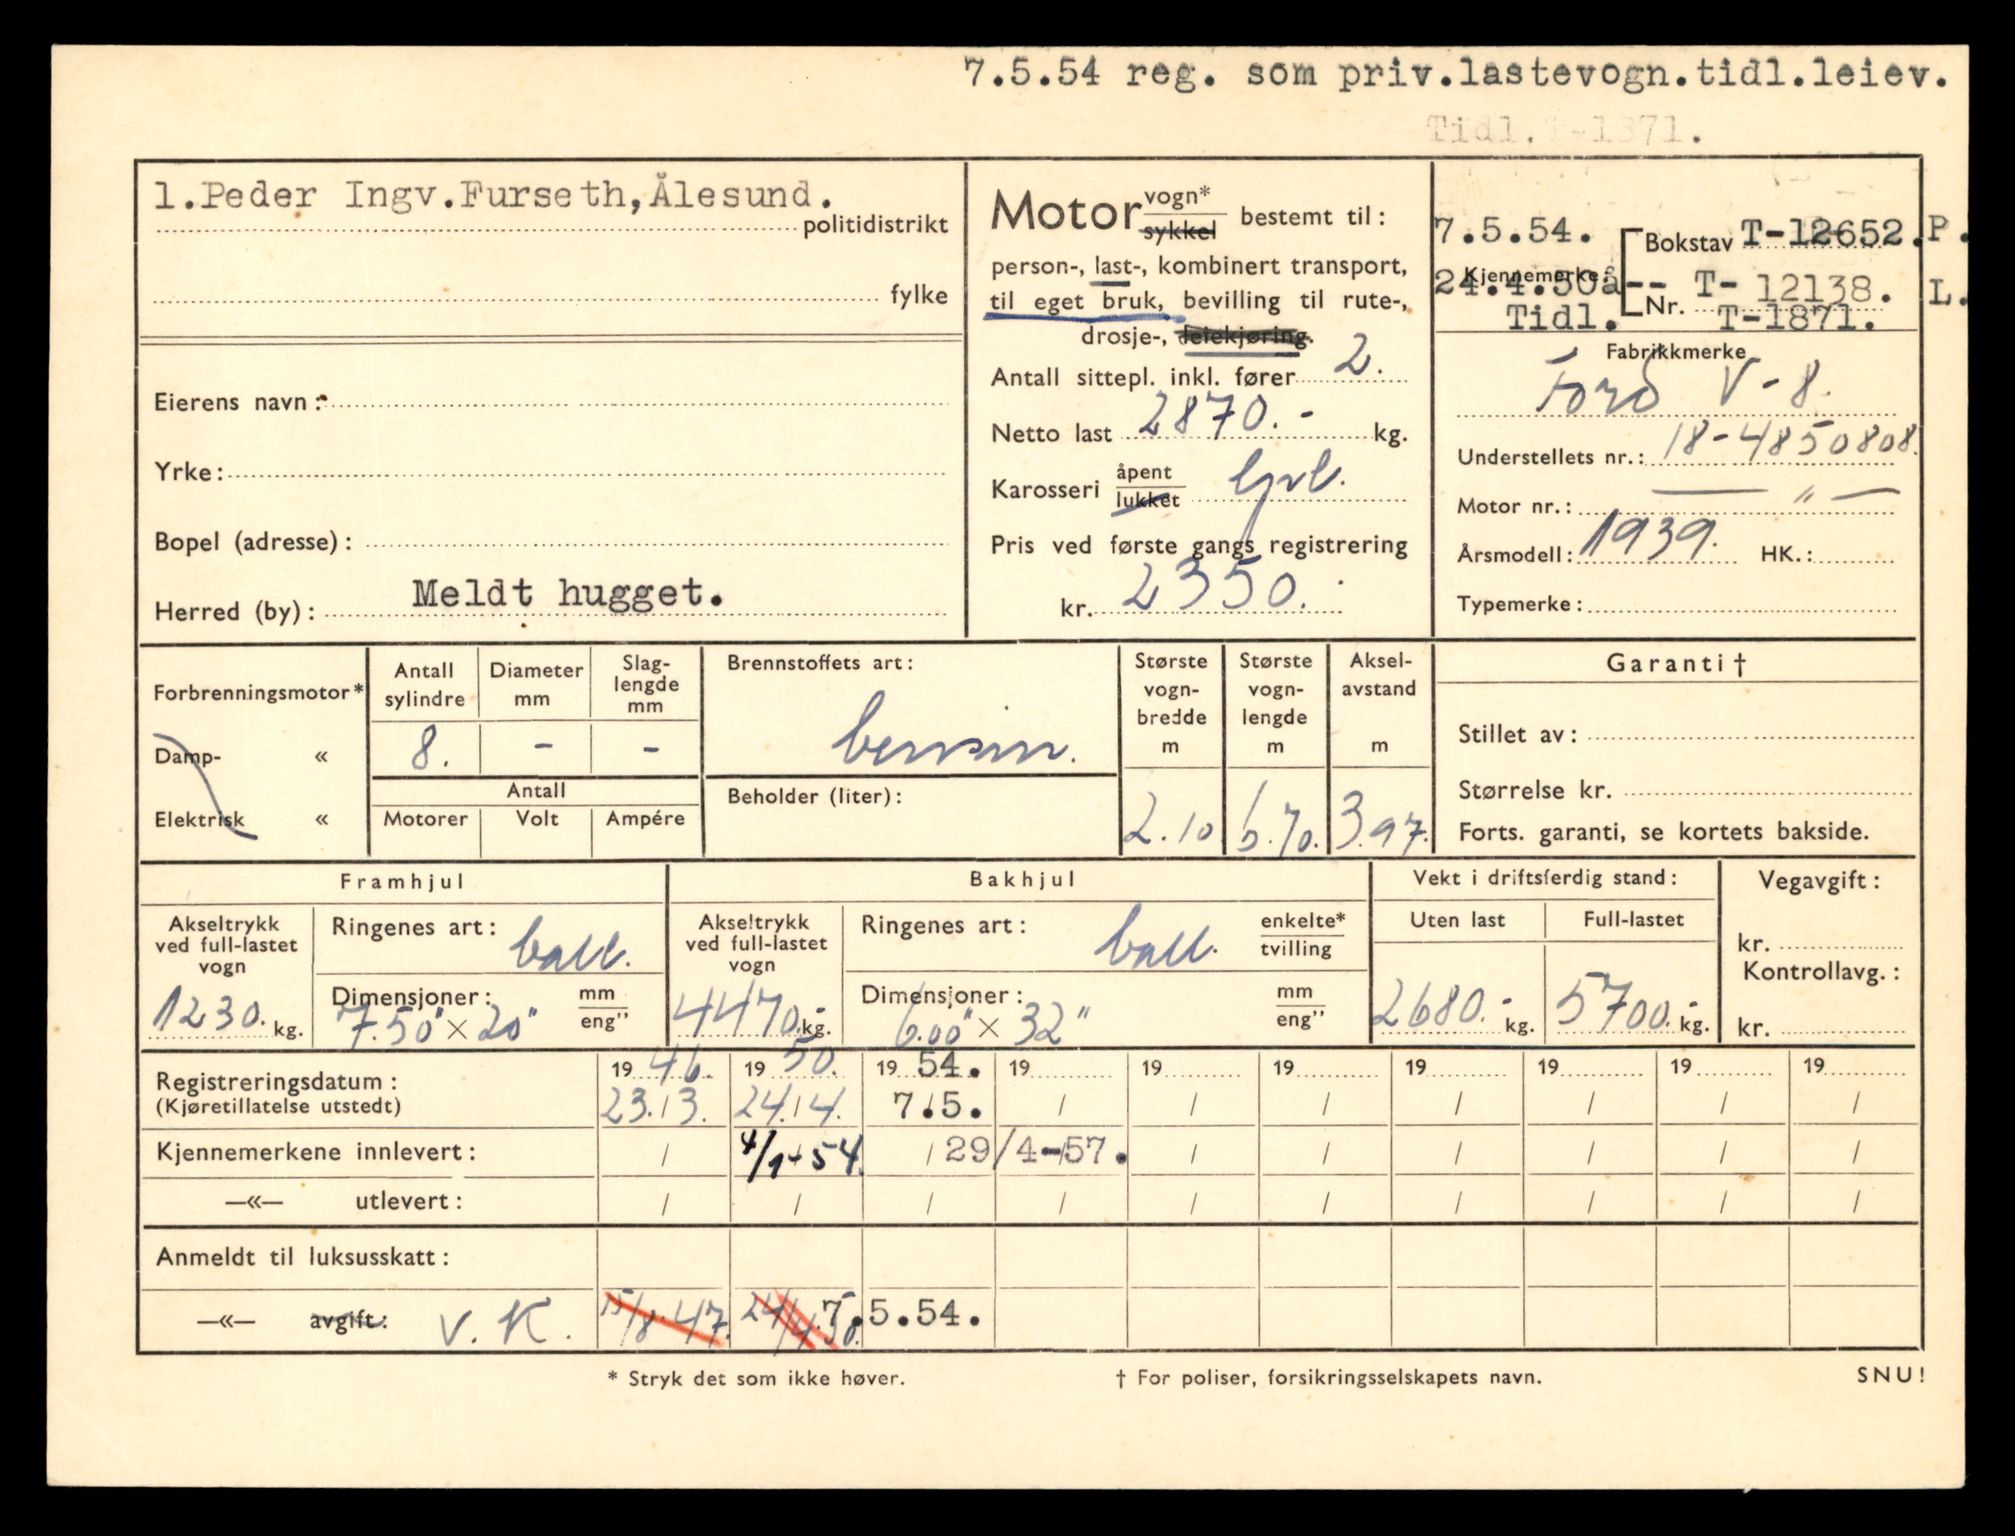 7.5.54 reg. som priv.lastevogn.tidl.leiev.
Tidl.T-1871.
1.Peder Ingv.Furseth,Ålesund.
politidistrikt
fylke
Eierens navn :
Yrke :
Bopel (adresse) :
Herred (by) : Meldt hugget.
Motor vogn* sykkel bestemt til :
person-, last-, kombinert transport,
til eget bruk, bevilling til rute-,
drosje-, leiekjøring.
Antall sittepl. inkl. fører 2.
Netto last 2870.- kg.
Karosseri åpent lukket
Pris ved første gangs registrering
kr. 2350.
7.5.54. Bokstav T-12652. P.
Kjennemerke:
24.4.50å-- T- 12138. L.
Nr.
Tidl. T-1871.
Fabrikkmerke
Ford V-8.
Understellets nr. : 18-4850808.
Motor nr. : — " —
Årsmodell : 1939. HK. :
Typemerke :
Forbrenningsmotor*
Damp- «
Elektrisk «
Antall sylindre
Diameter mm
Slag-lengde mm
8. - -
Antall
Motorer Volt Ampére
Brennstoffets art :
bensin.
Beholder (liter) :
Største vogn-bredde m
Største vogn-lengde m
Aksel-avstand m
2.10 6.70. 3.97.
Garanti †
Stillet av :
Størrelse kr.
Forts. garanti, se kortets bakside.
Framhjul
Akseltrykk ved full-lastet vogn
1230. kg.
Ringenes art : ball.
Dimensjoner : mm eng''
7.50" × 20"
Bakhjul
Akseltrykk ved full-lastet vogn
4470.- kg.
Ringenes art : ball. enkelte* tvilling
Dimensjoner : mm eng''
6.00" × 32"
Vekt i driftsferdig stand :
Uten last Full-lastet
2680.- kg. 5700.- kg.
Vegavgift :
kr.
Kontrollavg. :
kr.
19 46. 19 50. 19 54. 19 19 19 19 19 19 19
Registreringsdatum :
(Kjøretillatelse utstedt) 23./3. 24./4. 7.5. / / / / / / /
Kjennemerkene innlevert : / 4/1-54. / 29/4-57. / / / / / /
—«— utlevert : / / / / / / / / / /
Anmeldt til luksusskatt :
—«— avgift : V. K. 15/8.47. 24/4.50. 7.5.54.
* Stryk det som ikke høver.
† For poliser, forsikringsselskapets navn.
SNU!